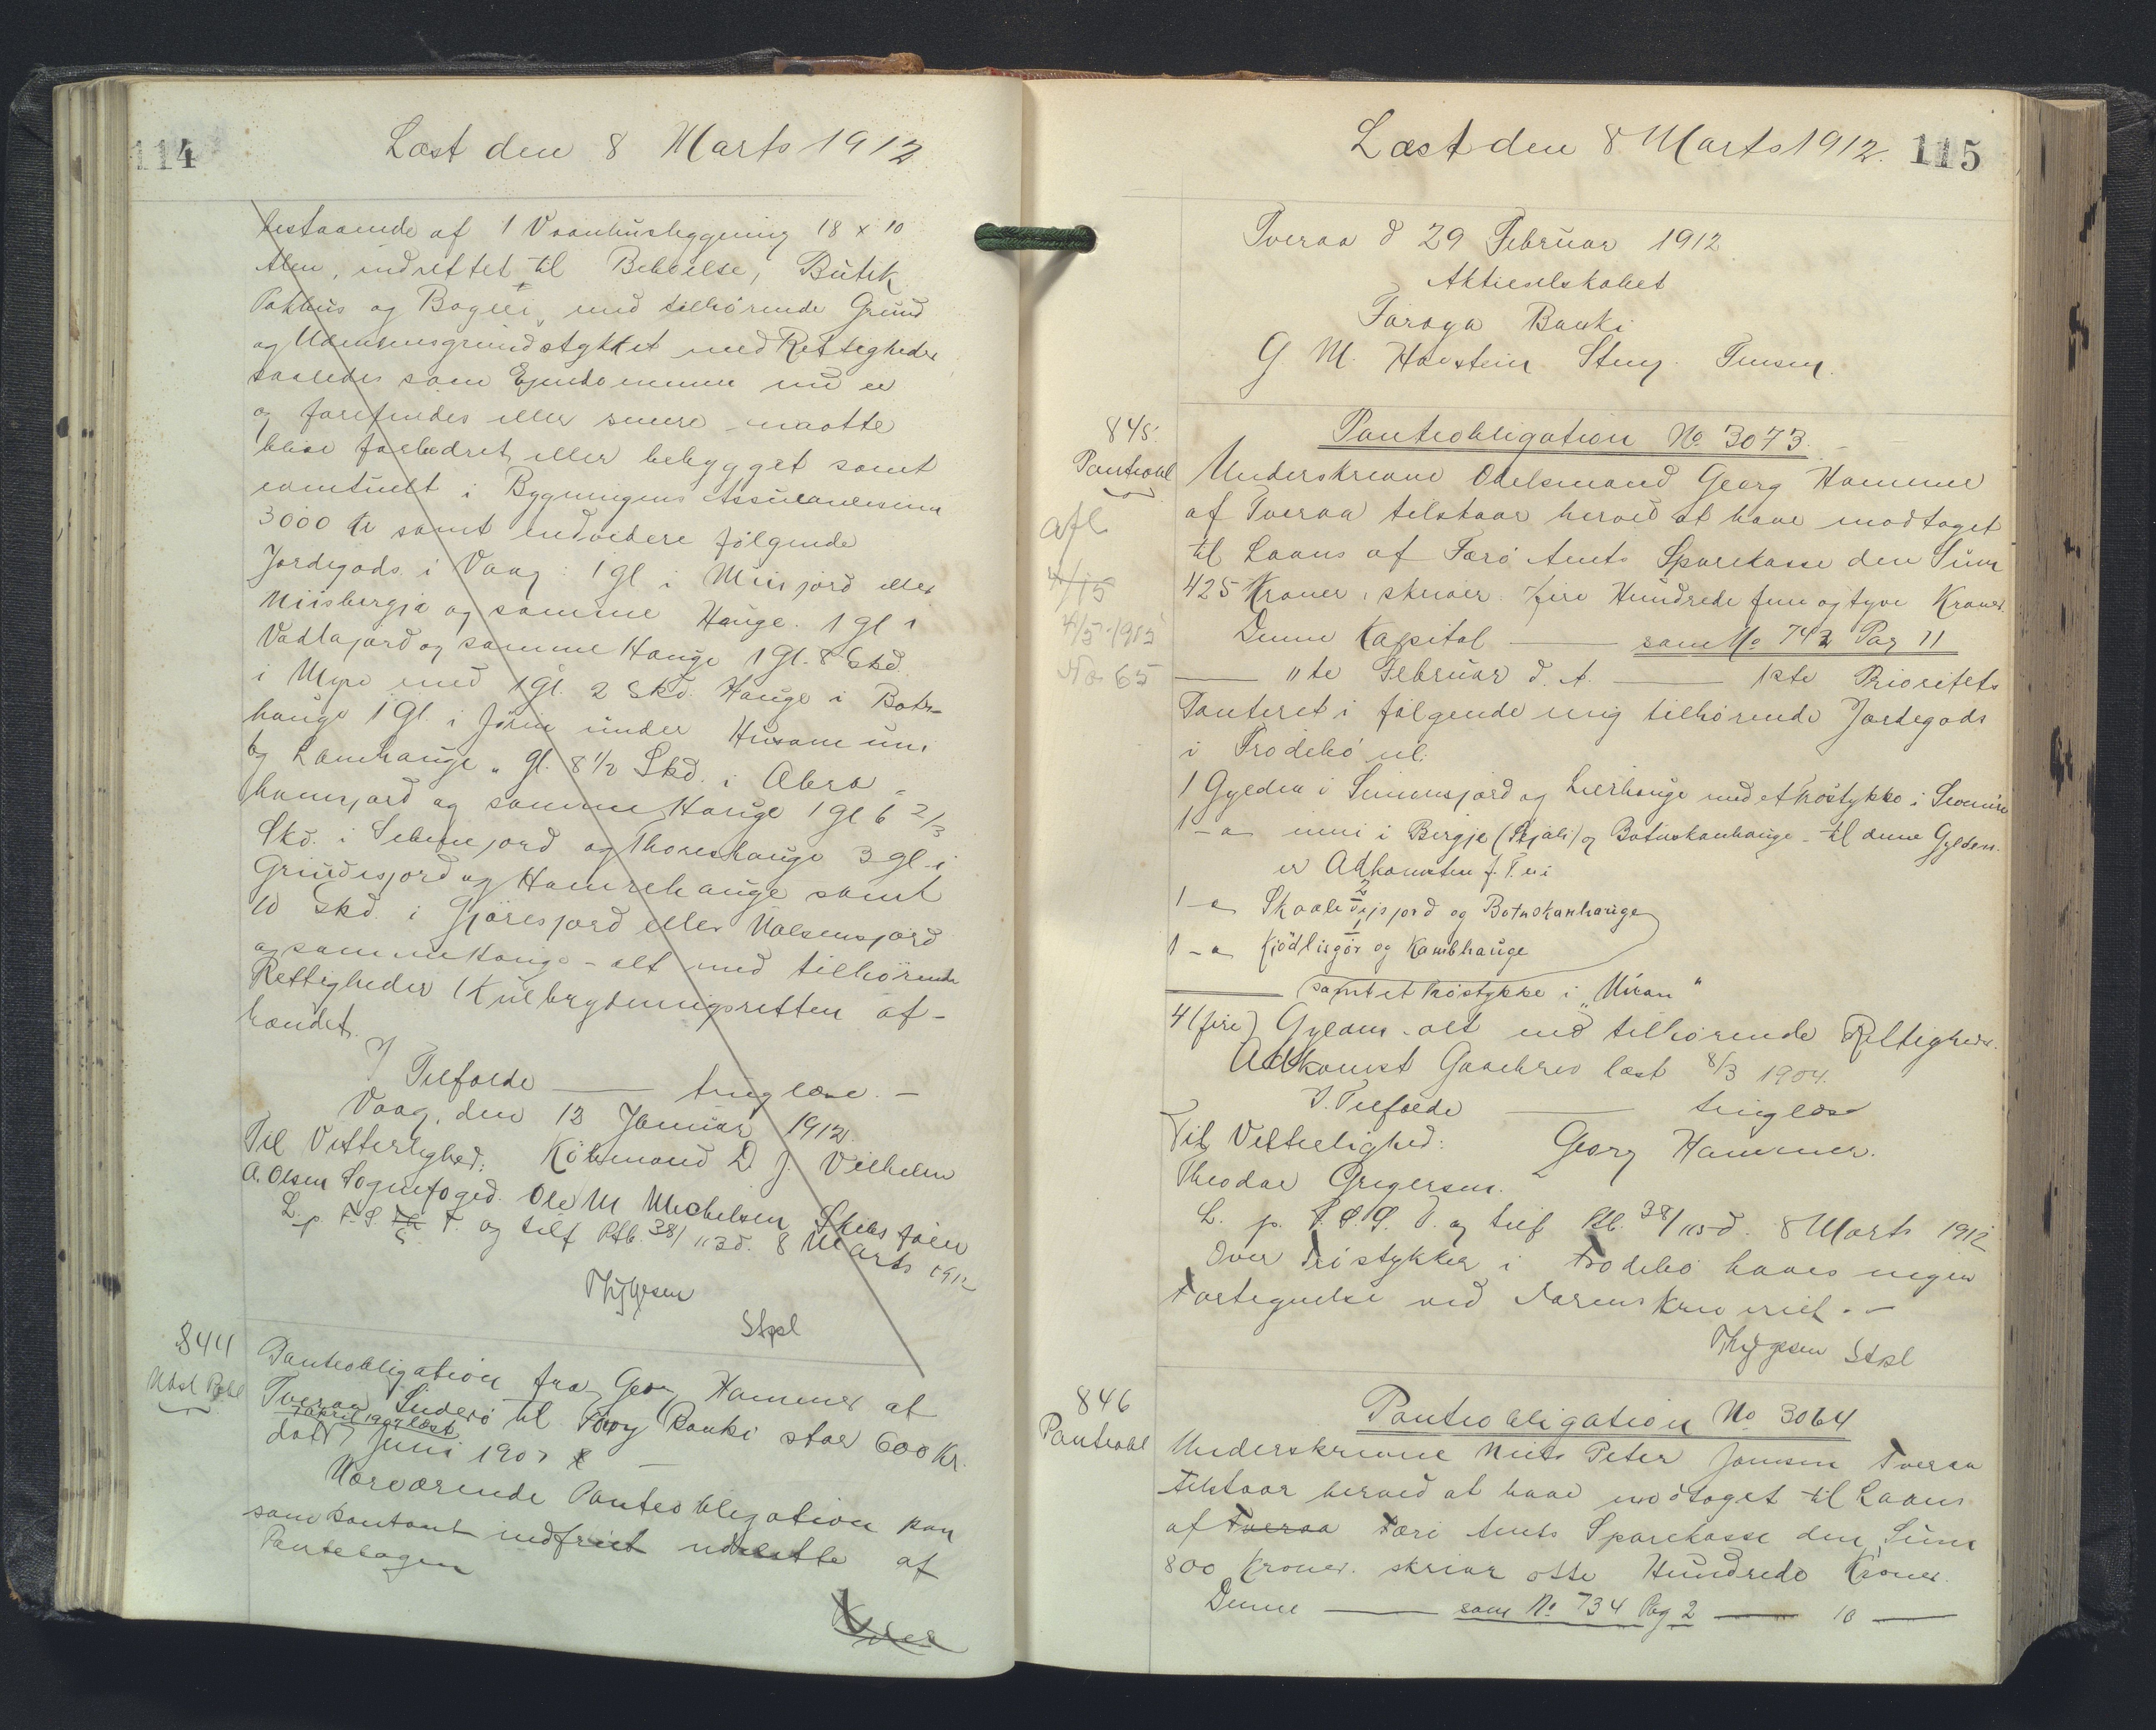 114
Læst den 8 Marts 1912
bestaaende af 1 Vaanhusbygning 18 x 10
Alen, indrettet til Beboelse, Butik
Pakhus og Bageri, med tilhørende Grund
og Udmarksgrundstykket med Rettigheder
saaledes som Ejendommene nu er
og forefindes eller senere maatte
blive forbedret eller bebygget samt
eventuelt i Bygningens Assurancesum
3000 Kr samt endvidere følgende
Jordegods i Vaag: 1 gl i Miisjord eller
Niisbergja og samme Hauge. 1 gl i
Vadlajord og samme Hauge 1 Gl. 8 Skd.
i Myre med 1 gl. 2 Skd. Hauge i Botn-
hauge 1 Gl i Jørm under Husom uni
og Lamhauge " gl. 8 1/2 Skd. i Abra-
hamsjord og samme Hauge 1 gl 6 2/3
Skd. i Sebinejord og Thoreshauge 3 gl. i
Grundesjord og Hamrehauge samt
10 Skd. i Gjøresjord eller Nalsensjord
og samme Hauge - alt med tilhørende
Rettigheder (Kulbrydningsretten af-
hændet.
I Tilfælde — tinglæse. -
Vaag, den 13 Januar 1912.
Til Vitterlighed: Købmand D. J. Vilhelm
A. Olsen Sognefoged. Ole M Michelsen Skibsfører
L. p. F. S. T. og tilf Ptb. 38/113 d. 8 Marts 1912
Thygesen
Stpl
844
Udsl Pobl
Panteobligation fra Georg Hammer af
Tveraa Suderø til Føroy Banki stor 600 Kr.
april 1907 læst
dat 7 Juni 1907
Nærværende Panteobligation kan
som kontant indfriet udslette af
Pantebogen
115
Læst den 8 Marts 1912.
Tveraa d 29 Februar 1912
Aktieselskabet
Føroya Banki
G M. Havstein Steny. Jensen.
845.
Panteobl
afl
4/15
4/5 1915
No 65
Panteobligation No 3073.
Underskrevne Odelsmand Georg Hammer
af Tveraa tilstaar herved at have modtaget
til Laans af Færø Amts Sparekasse den Sum
425 Kroner, skriver: fire Hundrede fem og tyve Kroner.
Denne Kapital — som No 742 Pag 11
— 11te Februar d. A. — 1ste Prioritets
Panteret i følgende mig tilhørende Jordegods
i Frodebø nl.
1 Gylden i Simonsjord og Lierhauge med et Trøstykke i
1 - a inni i Bergje (Skjali) og Botnskanhauge - til denne Gylden
er Adkomsten
1 - a Skaale jord og Botnskanhauge
1 - a Kjødlisgør og Kambhauge
— samt et Trøstykke i "Niran"
4 (fire) Gylden - alt med tilhørende Rettigheder.
Adkomst Gavebrev læst 8/3 1904.
I Tilfælde — tinglæse
Til Vitterlighed: Georg Hammer.
Theodor Gregersen.
L. p. F. S. S. T. og tilf Ptb. 38/115 d. 8 Marts 1912
Over Trøstykker i Frodebø haves ingen
Fortegnelse ved Sorenskriveriet. -
Thygesen Stpl
846
Panteobl
Panteobligation No 3064
Underskrevne Niels Peter Joensen Tveraa
tilstaar herved at have modtaget til Laans
af Tveraa Færø Amts Sparekasse den Sum
800 Kroner. skriver otte Hundrede Kroner.
Denne — som No 734 Pag 2 — 10 —